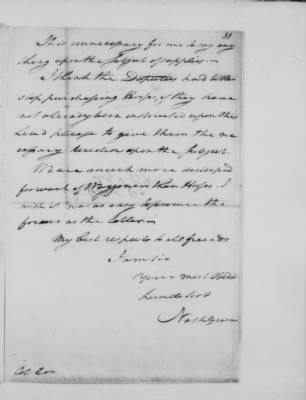 31
Tis unnecessary for me to say any
thing upon the subject of supplies.—
I think the Deputies had better
stop purchasing Horses, if they have
not already been instructed upon this
Head please to give them the ne
cessary direction upon the subject
We are much more
of Waggoners than Horses. I
wish it was as easy to procure the
former as the latter.—
My best respects to all friends
I am Sir
Your most Obedt
humble Serv
Nath Greene
Col Cox